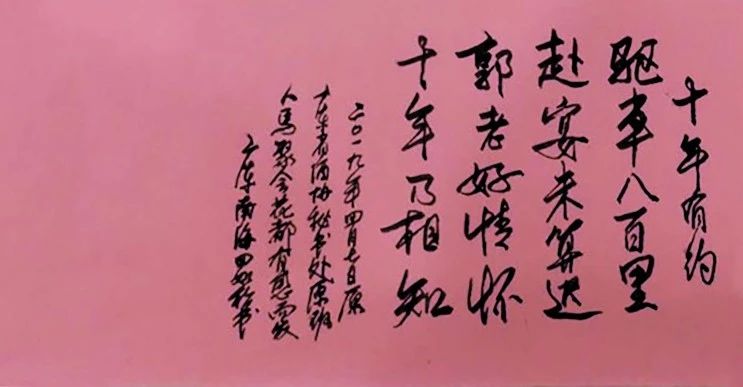 十年有约
驱车八百里
赴宴未算迟
郭老好情怀
十年乃相知
二〇一九年四月七日原
广东省酒协秘书处原班
人马聚会花都有感
广东南海田